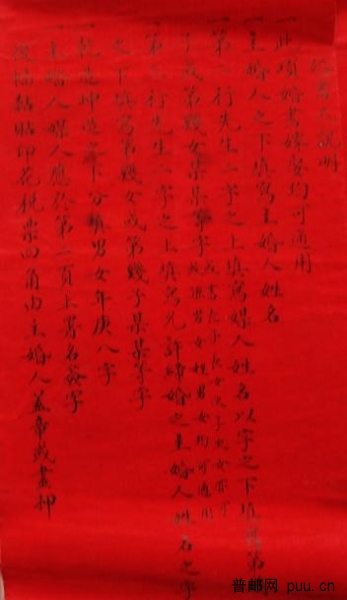 婚書式説明
一此項婚書嫁娶均可適用
一主婚人之下填寫主婚人姓名
一第一行先生二字之上填寫媒人姓名以字之下填寫第
子或第幾女某某等字
或書長子長女次子次女亦可
男女均可適用
一第二行先生二字之上填寫允許締婚之主婚人姓名之字
之下填寫第幾女或第幾子某某等字
一乾造坤造之下分填男女年庚八字
一主婚人媒人應於第二頁上署名簽字
後幅黏貼印花稅票四角由主婚人蓋章或畫押
普邮网 puu.cn